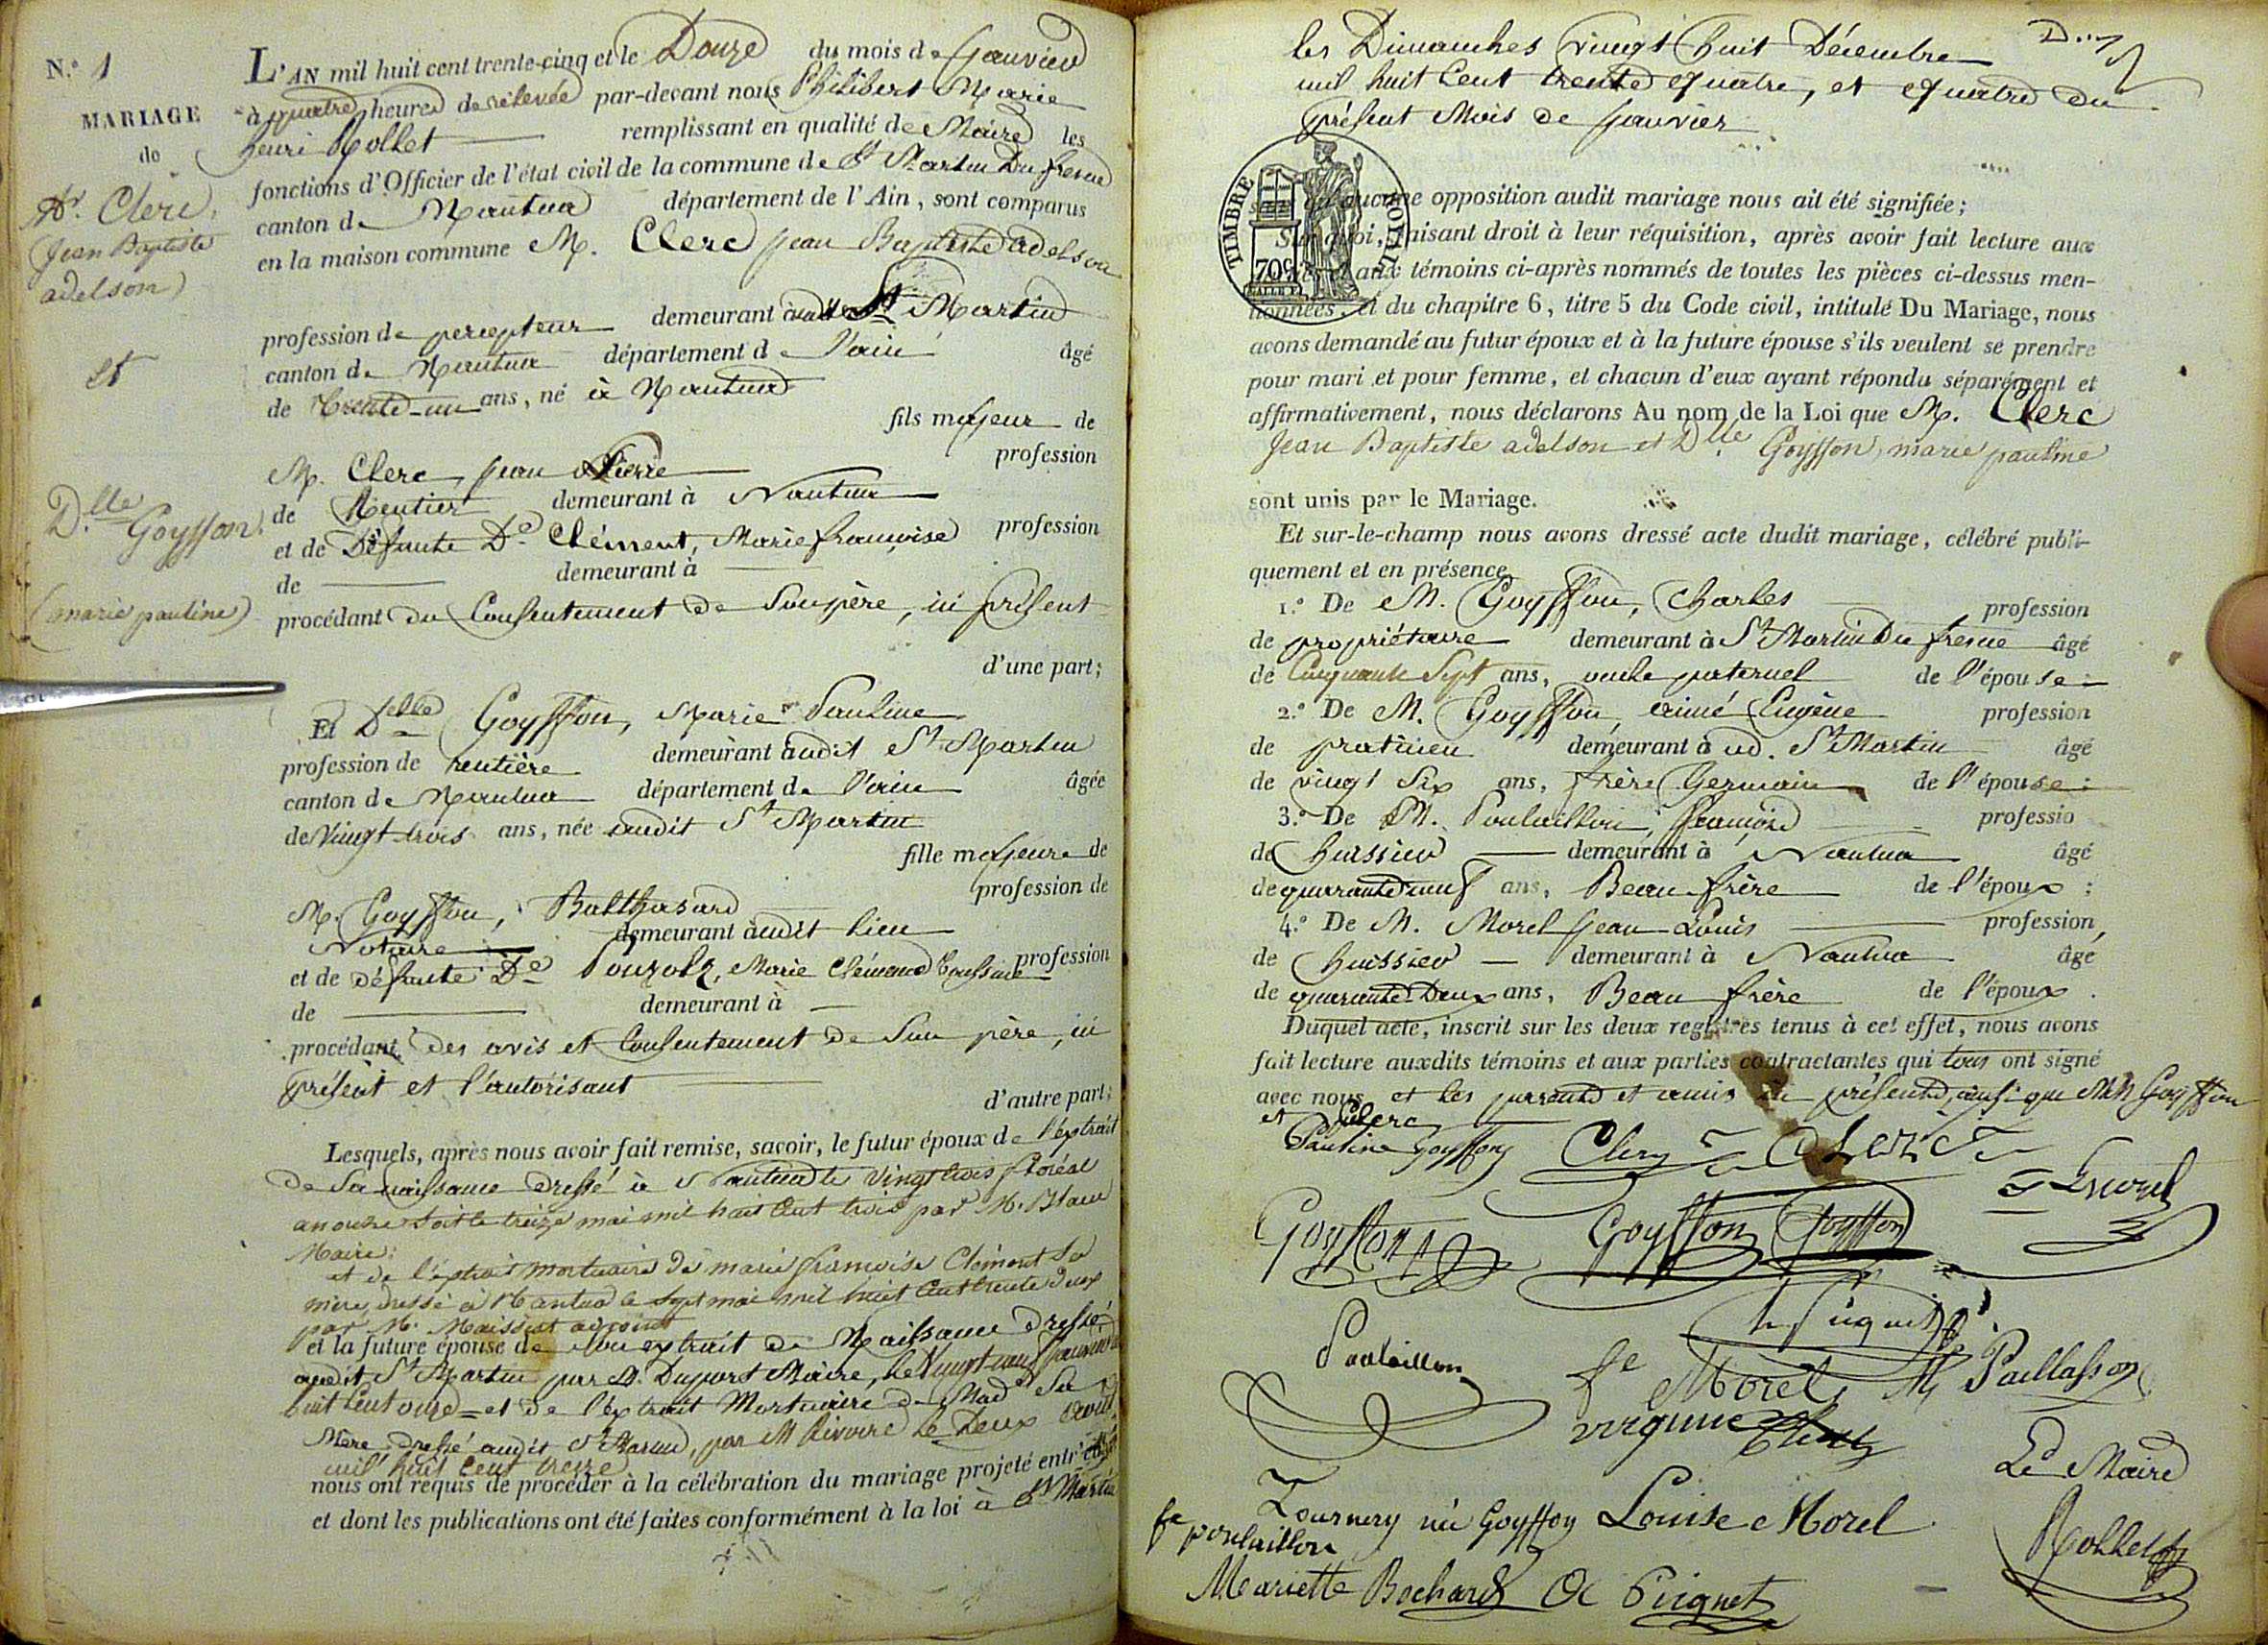 N.º 1
MARIAGE
de
Mr. Clerc,
(Jean Baptiste
adelson)
et
D.lle Goyffon.
(marie pauline)
L'AN mil huit cent trente-cinq et le Douze du mois de Janvier
à quatre heures de relevée par-devant nous Philibert Marie
henri Rollet remplissant en qualité de Maire les
fonctions d'Officier de l'état civil de la commune de St Martin Du fresne
canton de Nantua département de l'Ain, sont comparus
en la maison commune M. Clerc jean Baptiste adelson
profession de percepteur demeurant audit St Martin
canton de Nantua département de l'ain âgé
de trente-un ans, né à Nantua
fils majeur de
M. Clerc, jean Pierre profession
de Rentier demeurant à Nantua
et de Défunte De Clément, Marie françoise profession
de demeurant à
procédant du Consentement de Son père, ici présent
d'une part;
Et Delle Goyffon, Marie Pauline
profession de rentière demeurant audit St Martin
canton de Nantua département de l'ain âgée
de Vingt trois ans, née audit St Martin
fille majeure de
M. Goyffon, Balthasard profession de
Notaire demeurant audit lieu
et de défunte De Pouzolz, Marie Clémence profession
de demeurant à
procédant des avis et Consentement de Son père, ici
présent et l'autorisant
d'autre part;
Lesquels, après nous avoir fait remise, savoir, le futur époux de l'extrait
de Sa naissance dressé à Nantua le vingt trois floréal
an onze soit le treize mai mil huit Cent trois par M.
Maire;
et de l'extrait mortuaire de marie françoise Clément Sa
mère, dressé à Nantua le Sept mai mil huit Cent trente deux
par M. Maissiat adjoint
et la future épouse de son extrait de Naissance dressé
audit St Martin par M. Dupont Maire, le Vingt neuf
huit Cent onze = et de l'extrait Mortuaire de Made Sa
Mère dressé audit St Martin, par M Rivoire le Deux
mil huit Cent treize
nous ont requis de procéder à la célébration du mariage projeté entr'eux
et dont les publications ont été faites conformément à la loi à St Martin
les Dimanches vingt huit Décembre
mil huit Cent trente quatre, et quatre du
présent Mois de Janvier
TIMBRE ROYAL
70 c
sans qu'aucune opposition audit mariage nous ait été signifiée;
Sur quoi, faisant droit à leur réquisition, après avoir fait lecture aux
aux témoins ci-après nommés de toutes les pièces ci-dessus men-
tionnées, et du chapitre 6, titre 5 du Code civil, intitulé Du Mariage, nous
avons demandé au futur époux et à la future épouse s'ils veulent se prendre
pour mari et pour femme, et chacun d'eux ayant répondu séparément et
affirmativement, nous déclarons Au nom de la Loi que M. Clerc
Jean Baptiste adelson et Dlle Goyffon, marie pauline
sont unis par le Mariage.
Et sur-le-champ nous avons dressé acte dudit mariage, célébré publi-
quement et en présence
1.º De M. Goyffon, Charles profession
de propriétaire demeurant à St Martin Du fresne âgé
de Cinquante Sept ans, oncle paternel de l'épouse;
2.º De M. Goyffon, aimé Eugène profession
de praticien demeurant aud. St Martin âgé
de vingt Six ans, frère Germain de l'épouse;
3.º De M. Poulaillon, françois professio
de huissier demeurant à Nantua âgé
de quarante neuf ans, Beau-frère de l'époux;
4.º De M. Morel Jean-Louis profession,
de huissier demeurant à Nantua âgé
de quarante-Deux ans, Beau frère de l'époux.
Duquel acte, inscrit sur les deux registres tenus à cet effet, nous avons
fait lecture auxdits témoins et aux parties contractantes qui tous ont signé
avec nous et les parents et amis ici présents, ainsi que MM Goyffon
et Clerc
Pauline Goyffon Clerc CLERC
Goyffon Goyffon Goyffon
Poulaillon fe Morel Paillasson
virginie
Le Maire
Tournery née Goyffon Louise Morel
fe poulaillon
Rollet
Mariette Bochard